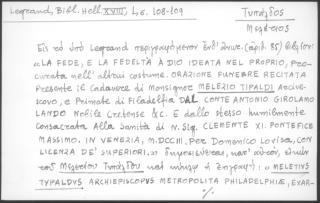 Legrand, Bibl. Hell. XVIII, 1, σε. 108-109
Τυπάλδος
Μελέτιος
Εἰς τὸ ὑπὸ Legrand περιγραφόμενον ἐνθ' ἄνωτ. (ἀριθ. 85) βιβλίον:
«LA FEDE, E LA FEDELTÀ A DIO IDEATA NEL PROPRIO, PRO-
curata nell' altrui costume. ORAZIONE FUNEBRE RECITATA
Presente il Cadavere di Monsignor MELEZIO TIPALDI Arcive-
scovo, e Primate di Filadelfia DAL CONTE ANTONIO GIROLAMO
LANDO Nobile Cretense &c. E dallo stesso humilmente
consacrata Alla Santità di N. Sig. CLEMENTE XI. PONTEFICE
MASSIMO. IN VENEZIA, M.DCCXIII, Per Domenico Lovisa, CON
LICENZA DE' SUPERIORI.» δημοσιεύεται, παρ' αὐτοῦ, εἰκὼν
τοῦ Μελετίου Τυπάλδου καὶ ἡ ἐπιγραφή: «MELETIVS
TYPALDVS ARCHIEPISCOPVS METROPOLITA PHILADELPHIÆ, EXAR-
./.